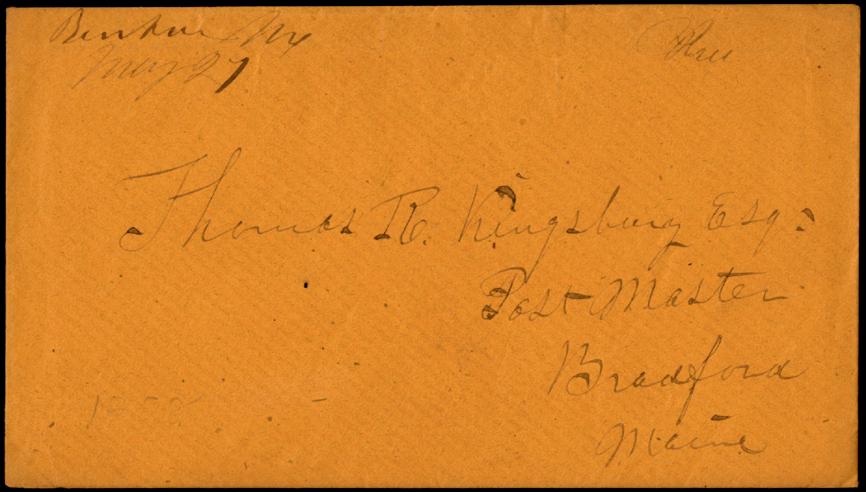 May 27
Free
Thomas R. Kingsbury Esq.
Post Master
Bradford
Maine